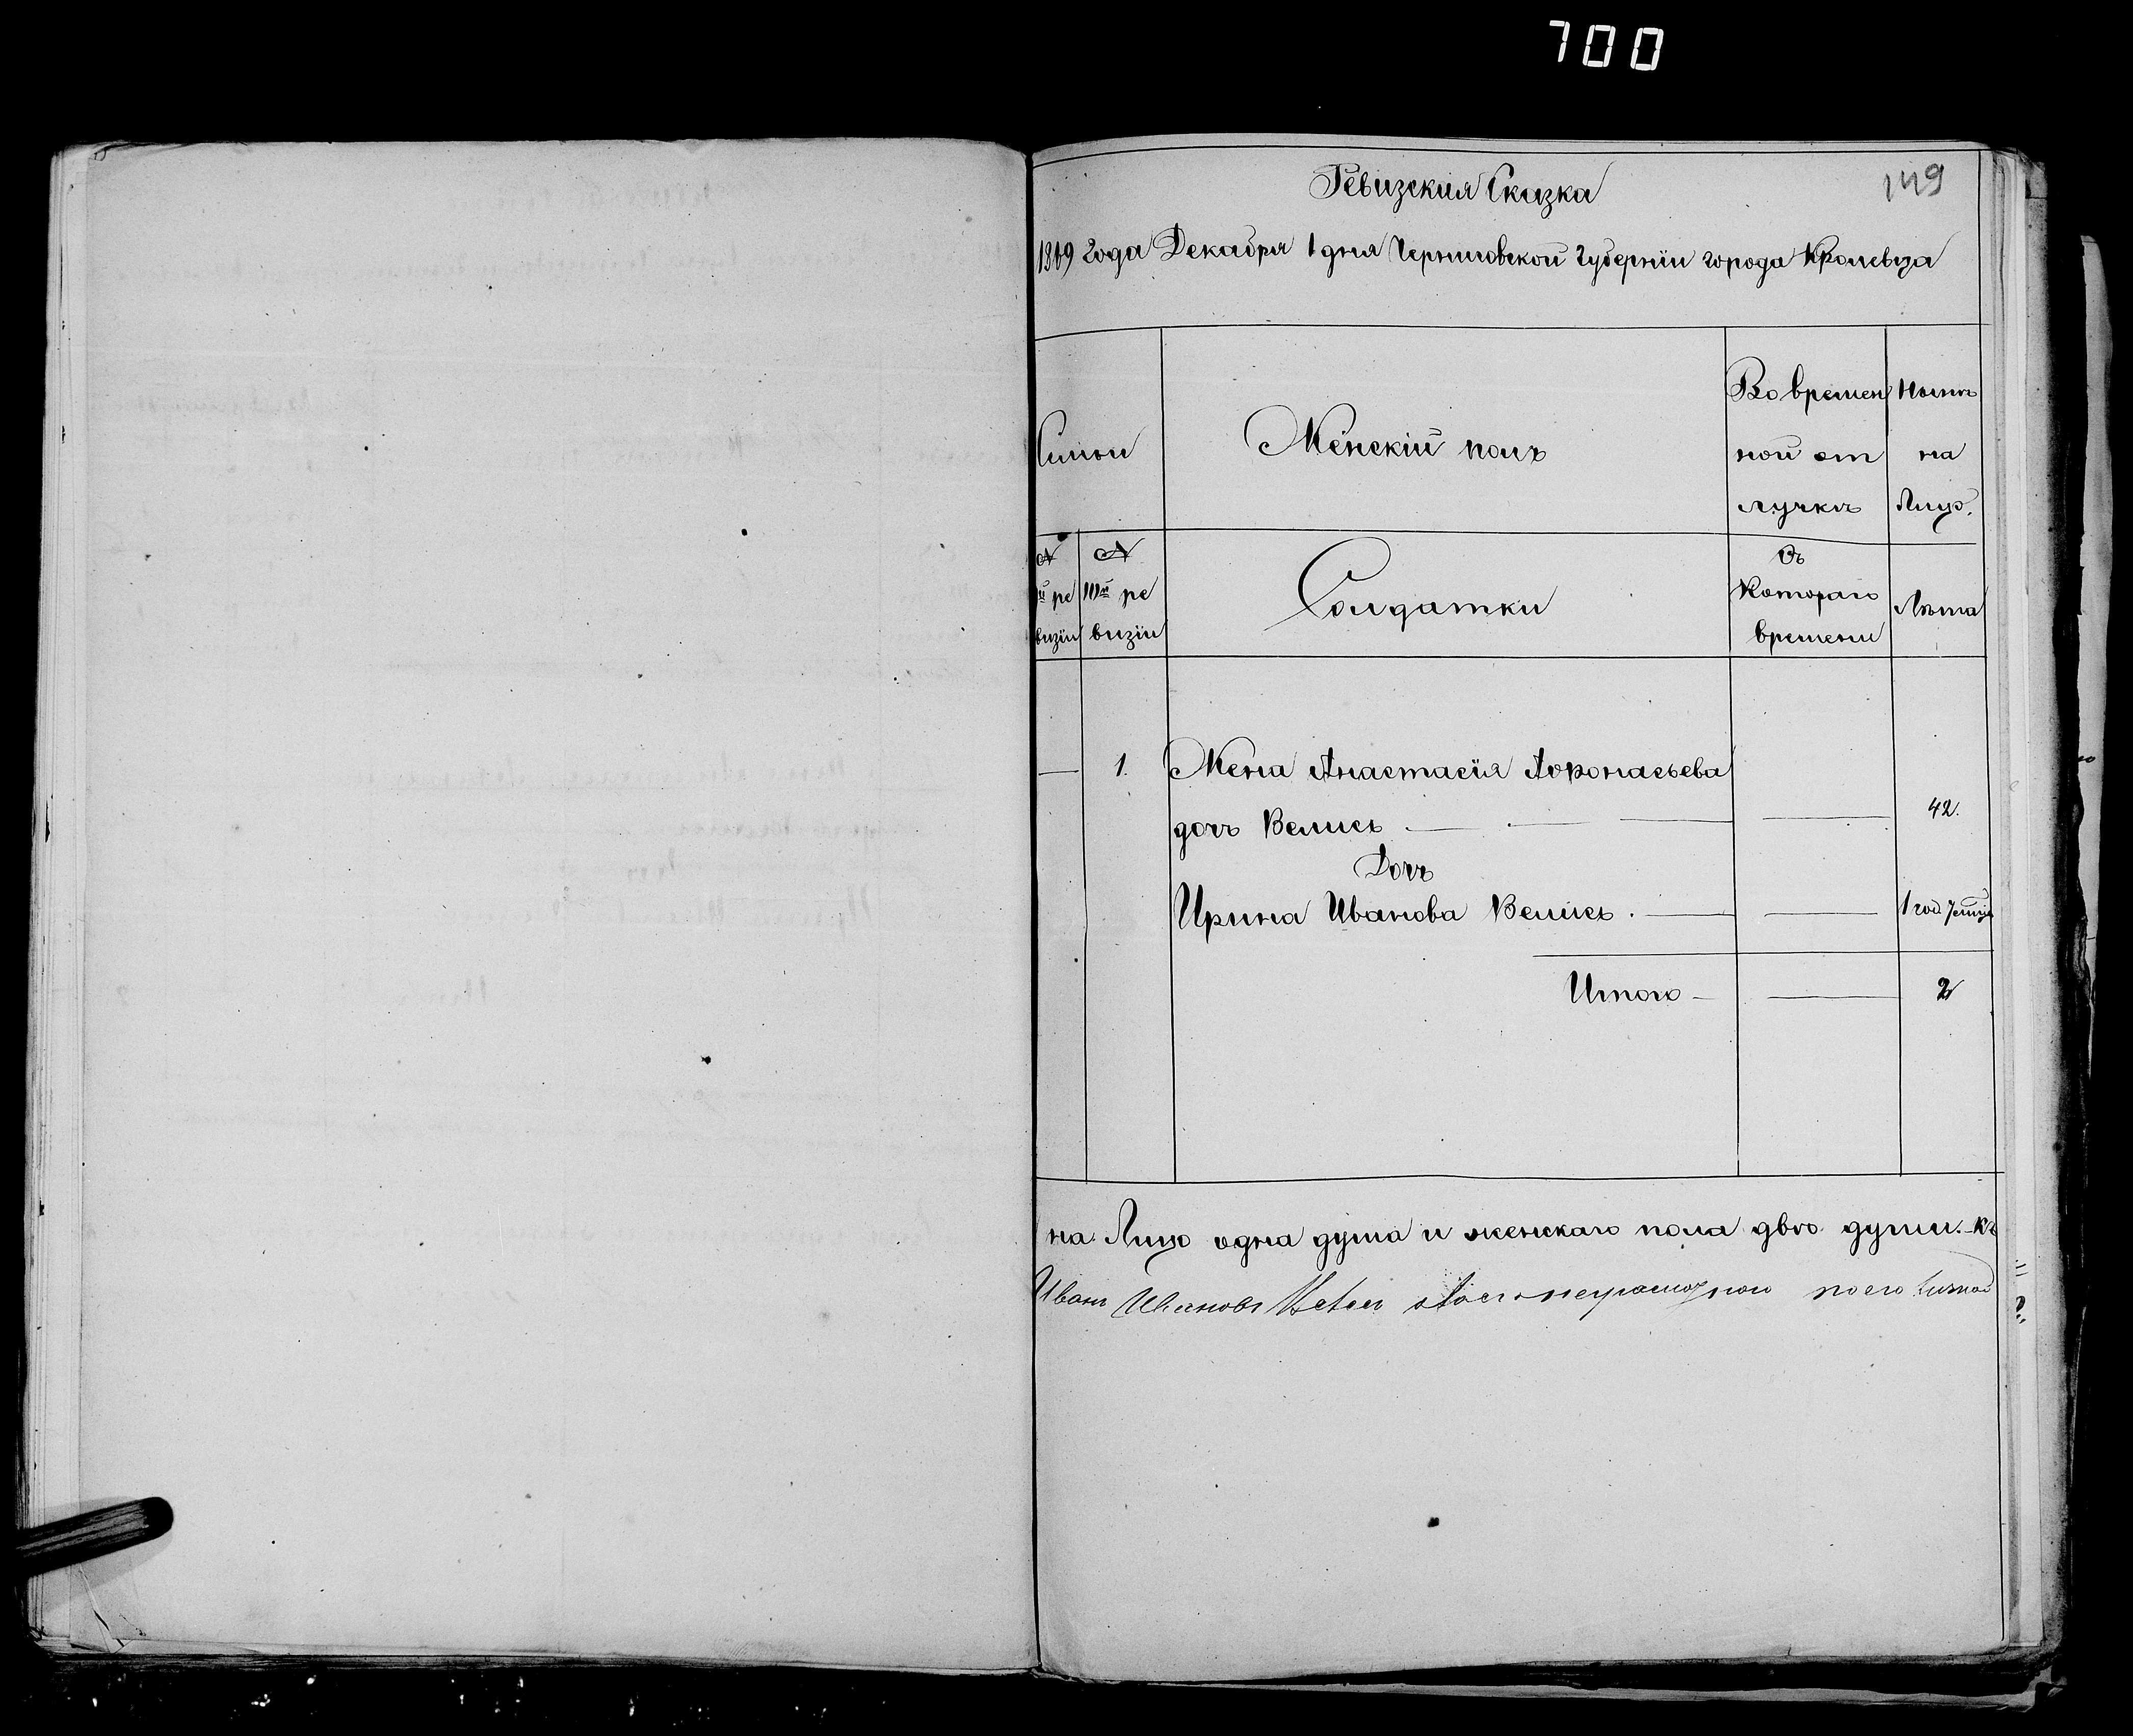 700
Ревизския Сказка
149
1869 года Декабря 1 дня Черниговской Губернiи города Кролевца
Женскiй полъ
Во времен
ной от
лучкѣ
Нынѣ
на
Лицо.
ре
визiи
IIIй ре
визiи
Солдатки
Съ
Котораго
времени
Лѣта
1. Жена Анастасiя Афонасьева
дочь Велись
42.
Дочь
Ирина Иванова Велись.
1 год 7
Итого
2
на Лицо одна душа и женскаго пола двѣ души.
Ивановъ